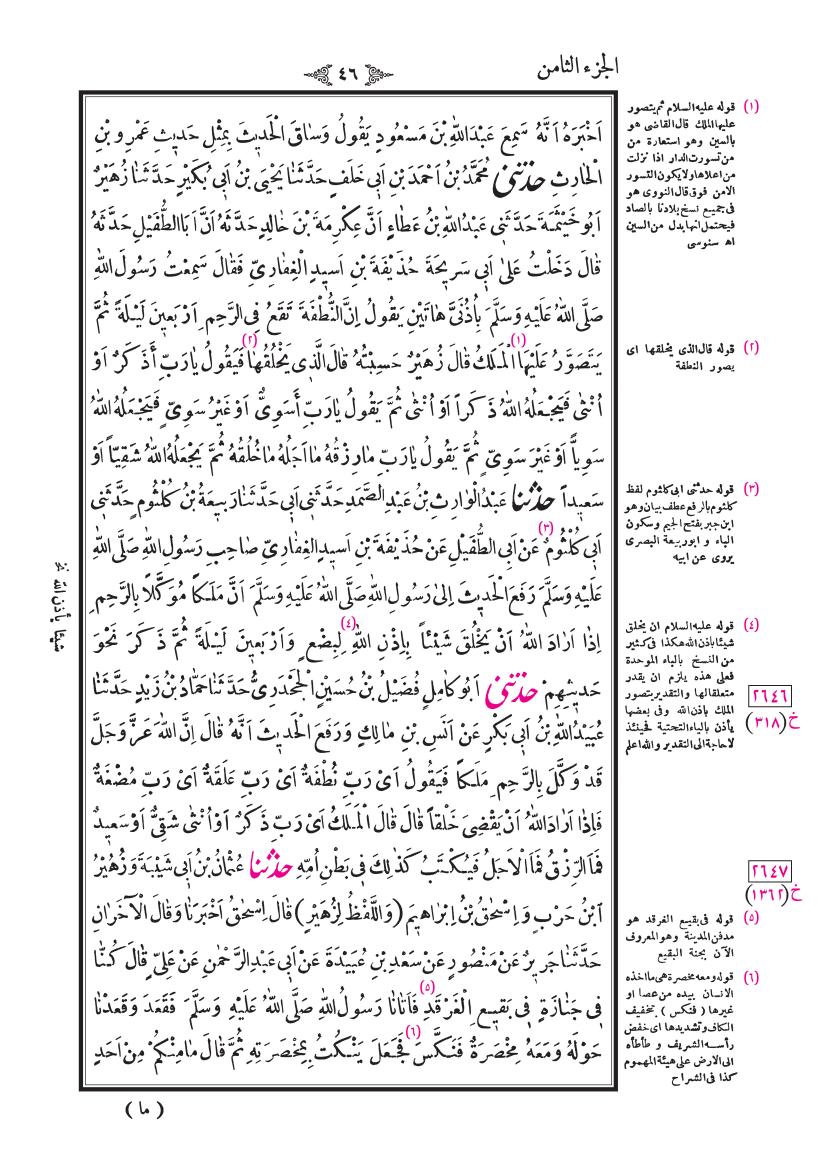 الجزء الثامن
٤٦
اَخْبَرَهُ اَنَّهُ سَمِعَ عَبْدَ اللّٰهِ بْنَ مَسْعُودٍ يَقُولُ وَسَاقَ الْحَديثَ بِمِثْلِ حَديثِ عَمْرِو بْنِ
الْحَارِثِ حَدَّثَنِي مُحَمَّدُ بْنُ اَحْمَدَ بْنِ اَبي خَلَفٍ حَدَّثَنَا يَحْيَى بْنُ اَبي بُكَيْرٍ حَدَّثَنَا زُهَيْرٌ
اَبُو خَيْثَمَةَ حَدَّثَنِي عَبْدُ اللّٰهِ بْنُ عَطَاءٍ اَنَّ عِكْرِمَةَ بْنَ خَالِدٍ حَدَّثَهُ اَنَّ اَبَا الطُّفَيْلِ حَدَّثَهُ
قَالَ دَخَلْتُ عَلىٰ اَبي سَريحَةَ حُذَيْفَةَ بْنِ اَسيدٍ الْغِفَارِيِّ فَقَالَ سَمِعْتُ رَسُولَ اللّٰهِ
صَلَّى اللّٰهُ عَلَيْهِ وَسَلَّمَ بِأُذُنَيَّ هَاتَيْنِ يَقُولُ اِنَّ النُّطْفَةَ تَقَعُ فِي الرَّحِمِ اَرْبَعينَ لَيْلَةً ثُمَّ
يَتَصَوَّرُ عَلَيْهَا (١) الْمَلَكُ قَالَ زُهَيْرٌ حَسِبْتُهُ قَالَ الَّذي يَخْلُقُهَا (٢) فَيَقُولُ يَا رَبِّ أَذَكَرٌ اَوْ
اُنْثىٰ فَيَجْعَلُهُ اللّٰهُ ذَكَراً اَوْ اُنْثىٰ ثُمَّ يَقُولُ يَا رَبِّ أَسَوِيٌّ اَوْ غَيْرُ سَوِيٍّ فَيَجْعَلُهُ اللّٰهُ
سَوِيّاً اَوْ غَيْرَ سَوِيٍّ ثُمَّ يَقُولُ يَا رَبِّ مَا رِزْقُهُ مَا اَجَلُهُ مَا خُلُقُهُ ثُمَّ يَجْعَلُهُ اللّٰهُ شَقِيّاً اَوْ
سَعيداً حَدَّثَنَا عَبْدُ الْوَارِثِ بْنُ عَبْدِ الصَّمَدِ حَدَّثَنِي اَبي حَدَّثَنَا رَبيعَةُ بْنُ كُلْثُومٍ حَدَّثَنِي
اَبي كُلْثُومٌ (٣) عَنْ اَبي الطُّفَيْلِ عَنْ حُذَيْفَةَ بْنِ اَسيدٍ الْغِفَارِيِّ صَاحِبِ رَسُولِ اللّٰهِ صَلَّى اللّٰهُ
عَلَيْهِ وَسَلَّمَ رَفَعَ الْحَديثَ اِلىٰ رَسُولِ اللّٰهِ صَلَّى اللّٰهُ عَلَيْهِ وَسَلَّمَ اَنَّ مَلَكاً مُوَكَّلاً بِالرَّحِمِ
اِذَا اَرَادَ اللّٰهُ اَنْ يَخْلُقَ شَيْئاً بِاِذْنِ اللّٰهِ (٤) لِبِضْعٍ وَاَرْبَعينَ لَيْلَةً ثُمَّ ذَكَرَ نَحْوَ
حَديثِهِمْ حَدَّثَنِي اَبُو كَامِلٍ فُضَيْلُ بْنُ حُسَيْنٍ الْجَحْدَرِيُّ حَدَّثَنَا حَمَّادُ بْنُ زَيْدٍ حَدَّثَنَا
عُبَيْدُ اللّٰهِ بْنُ اَبي بَكْرٍ عَنْ اَنَسِ بْنِ مَالِكٍ وَرَفَعَ الْحَديثَ اَنَّهُ قَالَ اِنَّ اللّٰهَ عَزَّ وَجَلَّ
قَدْ وَكَّلَ بِالرَّحِمِ مَلَكاً فَيَقُولُ اَىْ رَبِّ نُطْفَةٌ اَىْ رَبِّ عَلَقَةٌ اَىْ رَبِّ مُضْغَةٌ
فَاِذَا اَرَادَ اللّٰهُ اَنْ يَقْضِيَ خَلْقاً قَالَ قَالَ الْمَلَكُ اَىْ رَبِّ ذَكَرٌ اَوْ اُنْثىٰ شَقِيٌّ اَوْ سَعيدٌ
فَمَا الرِّزْقُ فَمَا الْاَجَلُ فَيُكْتَبُ كَذٰلِكَ في بَطْنِ اُمِّهِ حَدَّثَنَا عُثْمَانُ بْنُ اَبي شَيْبَةَ وَزُهَيْرُ
ابْنُ حَرْبٍ وَاِسْحٰقُ بْنُ اِبْرَاهيمَ (وَاللَّفْظُ لِزُهَيْرٍ) قَالَ اِسْحٰقُ اَخْبَرَنَا وَقَالَ الْآخَرَانِ
حَدَّثَنَا جَريرٌ عَنْ مَنْصُورٍ عَنْ سَعْدِ بْنِ عُبَيْدَةَ عَنْ اَبي عَبْدِ الرَّحْمٰنِ عَنْ عَلِيٍّ قَالَ كُنَّا
في جَنَازَةٍ في بَقيعِ الْغَرْقَدِ (٥) فَاَتَانَا رَسُولُ اللّٰهِ صَلَّى اللّٰهُ عَلَيْهِ وَسَلَّمَ فَقَعَدَ وَقَعَدْنَا
حَوْلَهُ وَمَعَهُ مِخْصَرَةٌ فَنَكَّسَ (٦) فَجَعَلَ يَنْكُتُ بِمِخْصَرَتِهِ ثُمَّ قَالَ مَا مِنْكُمْ مِنْ اَحَدٍ
( ما )
(١) قوله عليه السلام ثم يتصور
عليها الملك قال القاضى هو
بالسين وهو استعارة من
من تسورت الدار اذا نزلت
من اعلاها ولا يكون التسور
الامن فوق قال النووى هو
فى جميع نسخ بلادنا بالصاد
فيحتمل انها بدل من السين
اه سنوسى
(٢) قوله قال الذى يخلقها اى
يصور النطفة
(٣) قوله حدثنى ابى كلثوم لفظ
كلثوم بالرفع عطف بيان وهو
ابن جبر بفتح الجيم وسكون
الباء و ابو ربيعة البصرى
يروى عن ابيه
(٤) قوله عليه السلام ان يخلق
شيئا باذن الله هكذا فى كثير
من النسخ بالباء الموحدة
فعلى هذه يلزم ان يقدر
متعلقا لها والتقدير يتصور
الملك باذن الله وفى بعضها
يأذن بالياء التحتية فحينئذ
لا حاجة الى التقدير والله اعلم
٢٦٤٦
خ (٣١٨)
٢٦٤٧
خ (١٣٦٢)
(٥) قوله فى بقيع الغرقد هو
مدفن المدينة وهو المعروف
الآن بجنة البقيع
(٦) قوله ومعه مخصرة هى ما اخذه
الانسان بيده من عصا او
غيرها ( فنكس ) بتخفيف
الكاف وتشديدها اى خفض
رأسه الشريف و طأطأه
الى الارض على هيئة المهموم
كذا فى الشراح
شيئا يأذن الله نخ